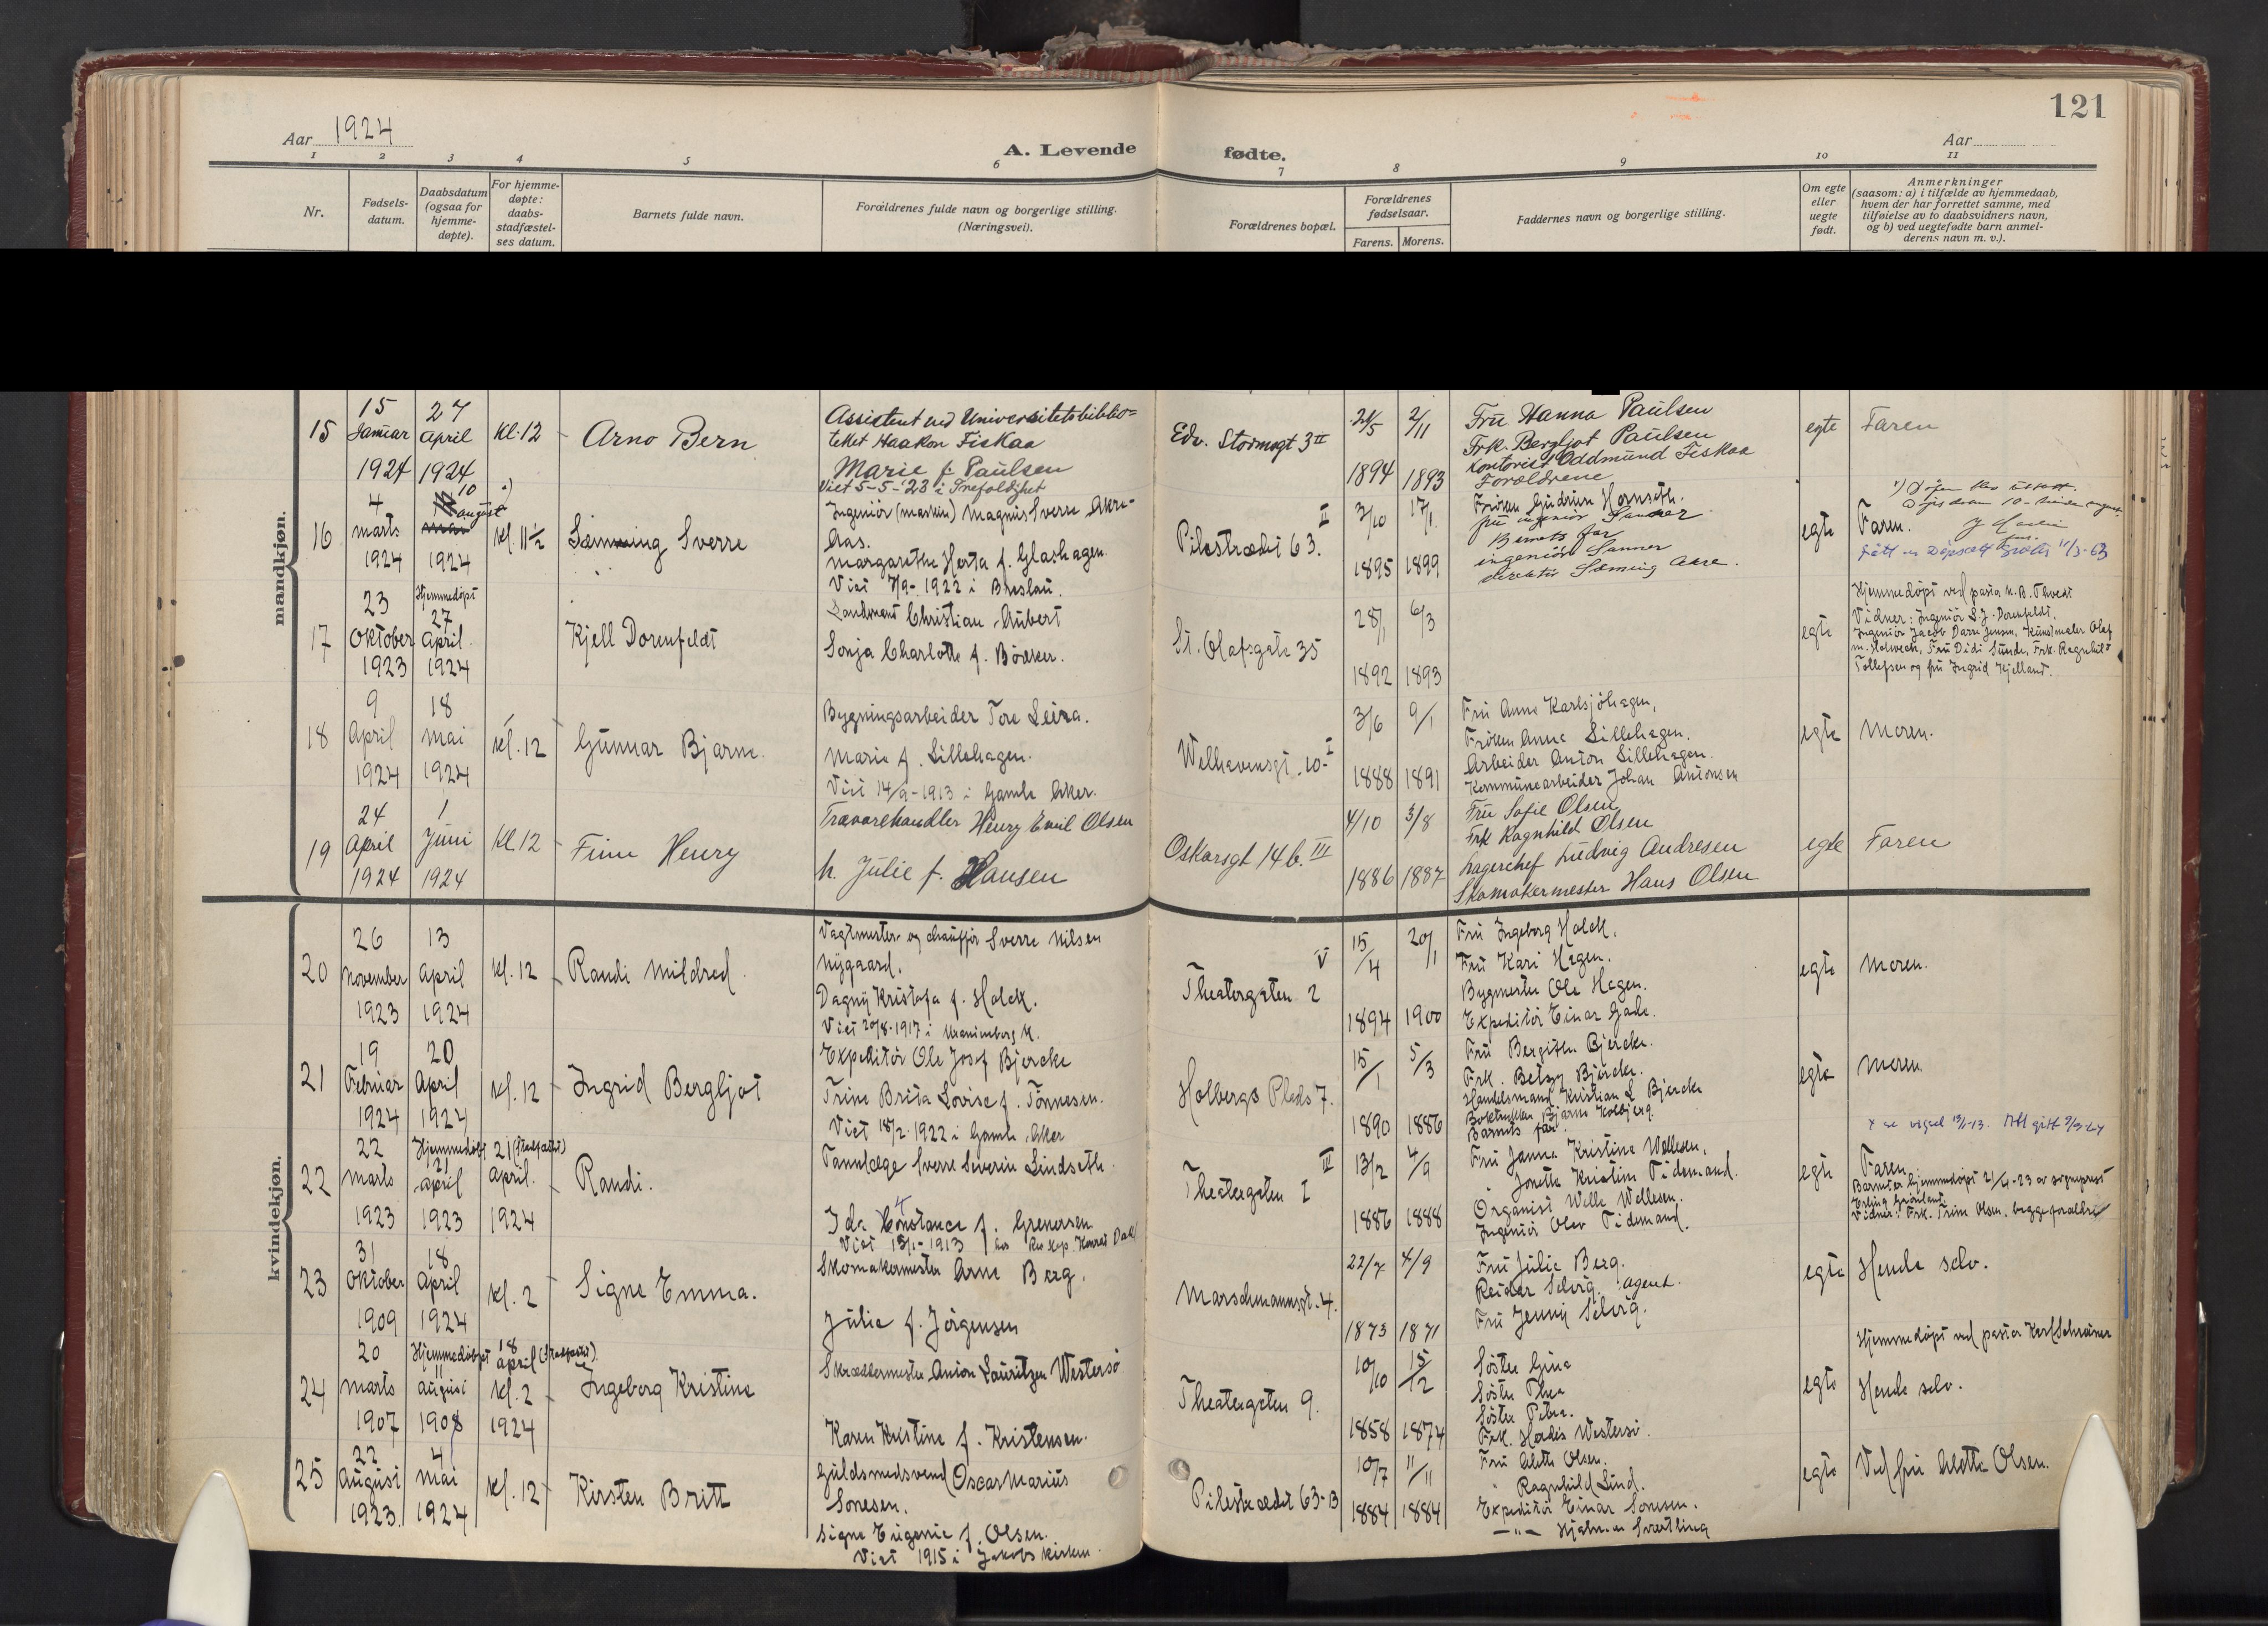 121
Aar 1924
A. Levende fødte.
Aar
1 2 3 4 5 6 7 8 9 10 11
Nr.
Fødsels-
datum.
Daabsdatum
(ogsaa for
hjemme-
døpte).
For hjemme-
døpte:
daabs-
stadfæstel-
ses datum.
Barnets fulde navn.
Forældrenes fulde navn og borgerlige stilling.
(Næringsvei).
Forældrenes bopæl.
Forældrenes
fødselsaar.
Farens. Morens.
Faddernes navn og borgerlige stilling.
Om egte
eller
uegte
født.
Anmerkninger
(saasom: a) i tilfælde av hjemmedaab,
hvem der har forrettet samme, med
tilføielse av to daabsvidners navn,
og b) ved uegtefødte barn anmel-
derens navn m. v.).
mandkjøn.
15
15
Januar
1924
27
April
1924
Kl. 12
Arno Bern
Assistent ved Universitetsbiblio=
teket Haakon Fiskaa
Marie f. Paulsen
Viet 5-5-'23 i Trefoldighet
Edv. Stormsgt 3 II
21/5
1894
2/11
1893
Fru Hanna Paulsen
Frk. Bergljot Paulsen
Kontorist Oddmund Fiskaa
Forældrene
egte
Faren
16
4
marts
1924
10
august
1924
Kl. 11½
Sæming Sverre
Ingeniør (maskin) Magnus Sverre Akre-
Aas.
Margarethe Herta f. Glashagen.
Viet 7/9-1922 i Breslau.
Pilestrædet 63. II
3/10
1895
17/1
1899
Frøken Gudrun Hornseth.
fru ingeniør Sanner
Barnets far
ingeniør Sanner
direktør Sæming Aare.
egte
Faren.
11/3-63
17
23
Oktober
1923
Hjemmedøpt
27
April
1924
Kjell Dorenfeldt
Landmand Christian Aubert
Sonja Charlotte f. Bödker.
St. Olafsgate 35
28/1
1892
6/3
1893
egte
Hjemmedøpt ved pastor N. B. Thvedt
Vidner: Ingeniør S. J. Dorenfeldt,
Ingeniør Jacob Darre Jensen, Kunstmaler Olaf
M. Holwech, Fru Didi Sunde, Frk. Ragnhild
Tollefsen og fru Ingrid Kjelland.
18
9
April
1924
18
mai
1924
Kl. 12
Gunnar Bjarne.
Bygningsarbeider Tore Leira.
Marie f. Lillehagen.
Viet 14/9-1913 i Gamle Aker.
Welhavensgt. 10 I
3/6
1888
9/1
1891
Fru Anne Karlsjöhagen,
Frøken Anna Lillehagen.
Arbeider Anton Lillehagen.
Kommunearbeider Johan Antonsen
egte
Moren.
19
24
April
1924
1
Juni
1924
Kl. 12
Finn Henry
Trævarehandler Henry Emil Olsen
h. Julie f. Hansen
Oskarsgt 14 b. III
4/10
1886
3/8
1887
Fru Sofie Olsen
Frk Ragnhild Olsen
Lagerchef Ludvig Andresen
Skomakermester Hans Olsen
egte
Faren
kvindekjøn.
20
26
November
1923
13
April
1924
Kl. 12
Randi Mildred.
Vagtmester og chauffør Sverre Nilsen
Nygaard.
Dagny Kristofa f. Holck.
Viet 20/8-1917 i Uranienborg K.
Theatergaten 2 V
15/4
1894
20/1
1900
Fru Ingeborg Holck,
Fru Kari Hagen.
Bygmester Ole Hagen.
Expeditør Einar Gade.
egte
Moren.
21
19
Februar
1924
20
April
1924
Kl. 12
Ingrid Bergljot
Expeditör Ole Josef Bjercke
Trine Brita Lovise f. Tönnesen.
Viet 18/2 1922 i Gamle Aker
Holbergs Plads 7.
15/1
1890
5/3
1886
Fru Bergithe Bjercke.
Frk. Betzy Bjercke.
Handelsmand Kristian L Bjercke
Boktrykker Bjarne Kolbjerg.
Barnets far.
egte
Moren
22
22
Marts
1923
Hjemmedøbt
21
April
1923
21 (Stadfæstet)
April.
1924
Randi.
Tannlæge Sverre Severin Lindseth.
Ida Constance f. Grenersen
Viet 13/1-1913 hos Res. kap. Konrad Dahl
Theatergaten 1 III
13/2
1886
4/9
1888
Fru Janna Kristine Wellesen,
" Jonette Kristine Tidemand.
Organist Welle Wellesen.
Ingeniør Olav Tidemand.
egte
x se vigsel 13/1-13.
Faren
Barnet er hjemmedøpt 21/4-23 av sogneprest
Erling Grönland.
Vidner: Frk. Trine Olsen, begge forældre
23
31
Oktober
1909
18
April
1924
Kl. 2
Signe Emma.
Skomakermester Arne Berg.
Julie f. Jörgensen
Marschmannsgt. 4.
22/7
1873
4/9
1871
Fru Julie Berg.
Reidar Solvig. agent.
Fru Jenny Solvig.
egte
Hende selv.
24
20
Marts
1907
Hjemmedøpt
11
August
1908
18
April (Stadfæstet).
Kl. 2
1924
Ingeborg Kristine
Skræddermester Anton Lauritzen Westersø
Karen Kristine f. Kristensen.
Theatergaten 9.
10/10
1858
15/12
1874
Søster Gina
Søster Thea
Søster Petra.
Frk. Hordis Westersø.
egte
Hjemmedøpt ved pastor Karl Schreiner
Hende selv.
25
22
August
1923.
4
Mai
1924
Kl. 12
Kirsten Britt
Guldsmedsvend Oscar Marius
Sonesen.
Signe Eugenie f. Olsen.
Viet 1915 i Jakobs kirken.
Pilestrædet 63-B
10/7
1884
11/11
1884
Fru Alette Olsen.
" Ragnhild Lind.
Expeditør Einar Sonesen.
—"— Hjalmar Svartling
egte
Ved fru Alette Olsen.